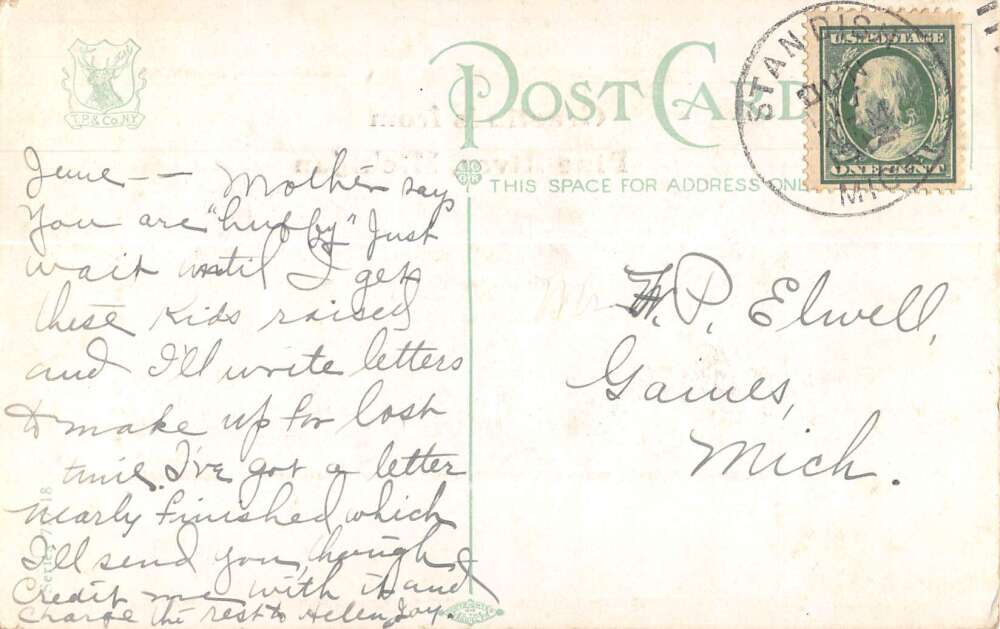 T.P. & Co. N.Y.
POST CARD
THIS SPACE FOR ADDRESS ONL
U.S. POSTAGE
ONE CENT
STANDISH
JUN
MICH
June -- Mother says
You are "huffy" Just
wait until I get
these Kids raised
and I'll write letters
to make up for lost
time. I've got a letter
nearly finished, which
I'll send you, though,
Credit me with it and
Charge the rest to Helen Joy.
F. P. Elwell,
Gaines,
Mich.
Series 718